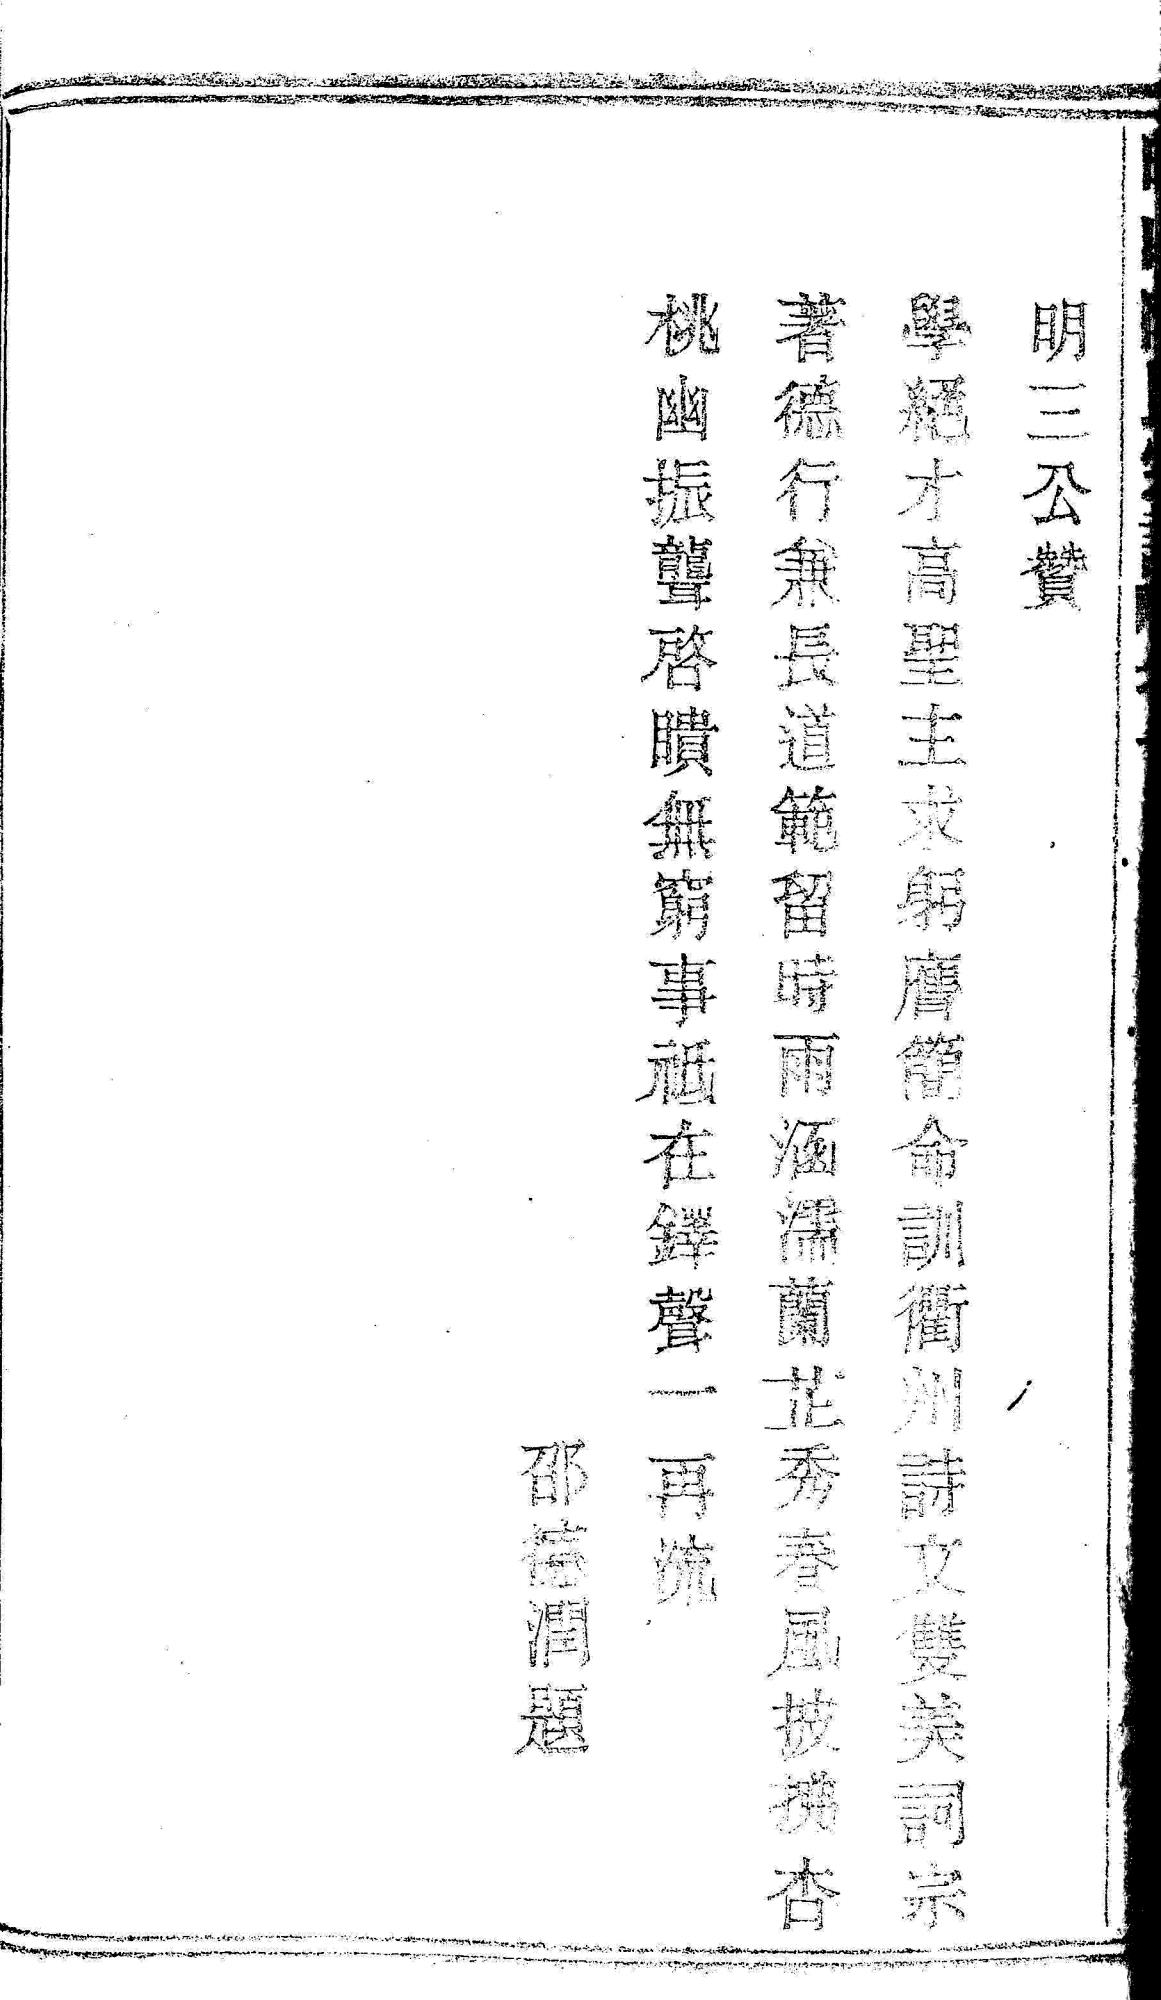 明三公贊
學絕才高聖主求躬膺簡命訓衢州詩文雙美詞宗
著德行兼長道範留時雨涵濡蘭芷秀春風披拂杏
桃幽振聾啓瞶無窮事祗在鐸聲一再流
邵德潤題